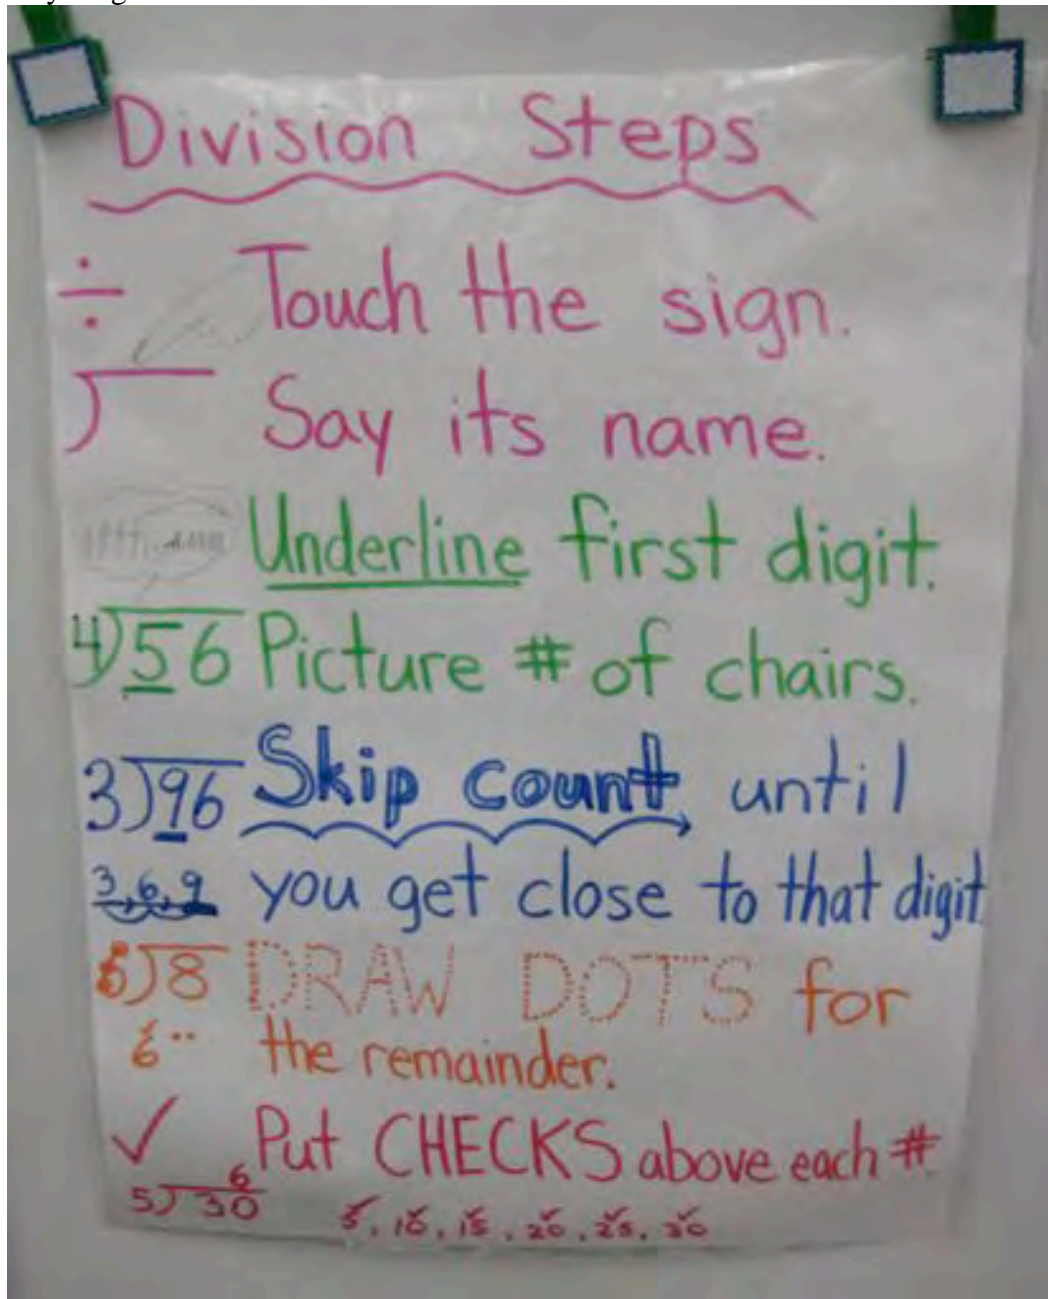 Division Steps
÷ Touch the sign.
Say its name.
Underline first digit.
4)56 Picture # of chairs.
3)96 Skip count until
3, 6, 9 you get close to that digit
)8 DRAW DOTS for
6 the remainder.
✓ Put CHECKS above each #
6
5)30 5, 10, 15, 20, 25, 30